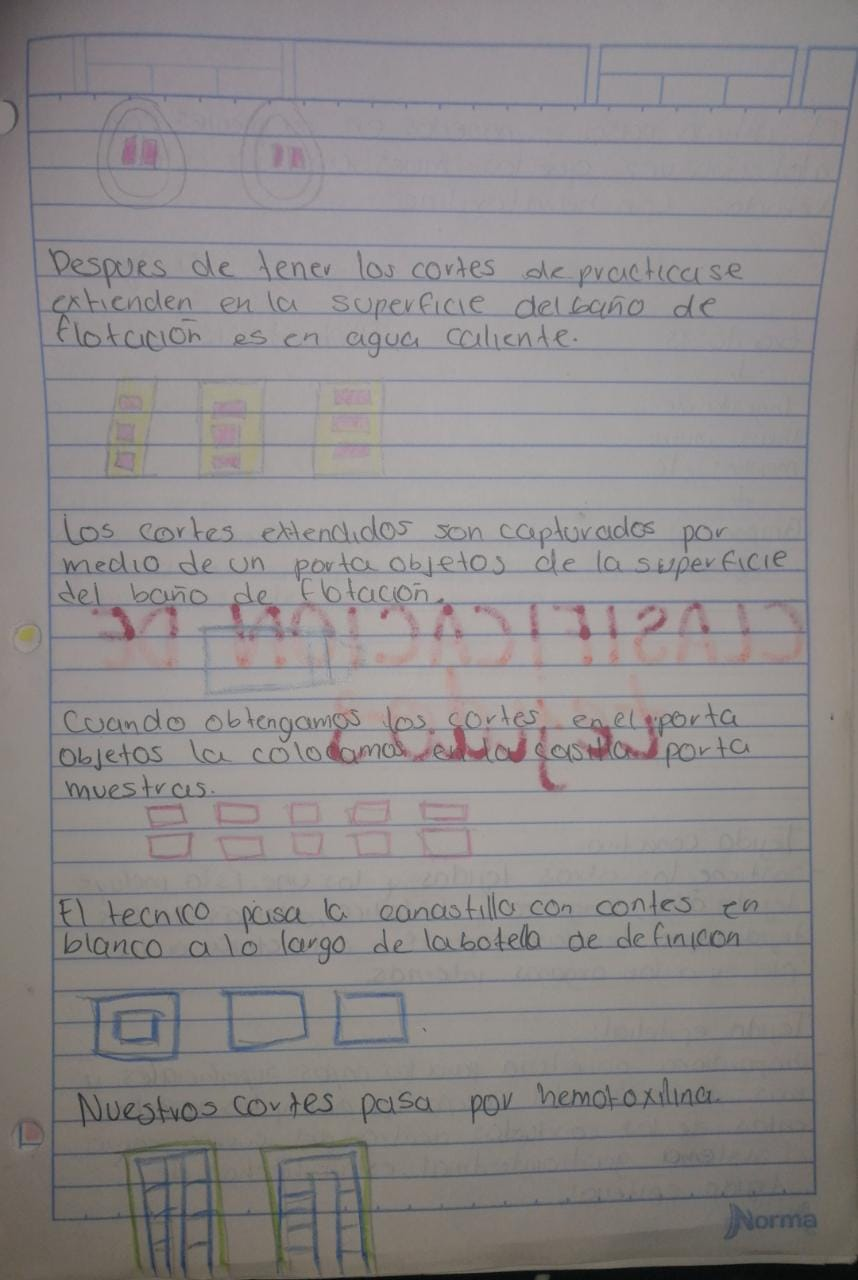 Despues de tener los cortes de practica se
extienden en la superficie del baño de
flotación es en agua caliente.
Los cortes extendidos son capturados por
medio de un porta objetos de la superficie
del baño de flotación.
CLASIFICACION DE
tejidos
Cuando obtengamos los cortes en el porta
objetos la colocamos en la casilla porta
muestras.
El tecnico pasa la canastilla con contes en
blanco a lo largo de la botella de definicon
Nuestros cortes pasa por hemotoxilina.
Norma